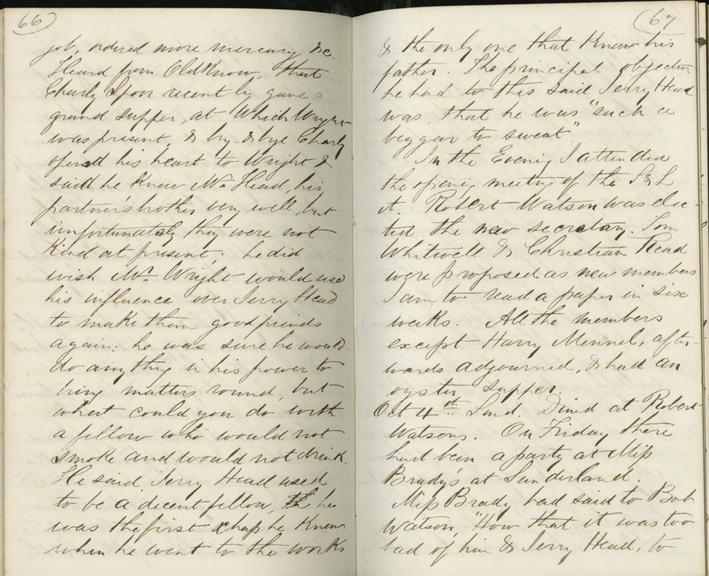 66
job, ordered more mercury &c.
Heard from Oldknow, that
Charly Spoor recently gave a
grand supper, at Which Wright
was present, & by & bye Charly
opened his heart to Wright &
said he knew Mr. Head, his
partner's brother very well, but
unfortunately they were not
kind at present; he did
wish Mr. Wright would use
his influence over Jerry Head
to make them good friends
again: he was sure he would
do anything in his power to
bring matters round, but
what could you do with
a fellow who would not
smoke and would not drink.
He said Jerry Head used
to be a decent fellow, he
was the first chap he knew
when he went to the works
67
& the only one that knew his
father. The principal objection
he had to this said Jerry Head
was, that he was "such a
beggar to sweat"
In the Evening I attended
the opening meeting of the
it. Robert Watson was elec-
ted the new secretary. Tom
Whitwell & Christian Head
were proposed as new members
I am to read a paper in six
weeks. All the members
except Harry Mennel, after-
wards adjourned, & had an
oyster supper.
Oct 4th. Sund. Dined at Robert
Watsons. On Friday there
had been a party at Miss
Bradys at Sunderland.
Miss Brady had said to Bob
Watson, "How that it was too
bad of him & Jerry Head, to